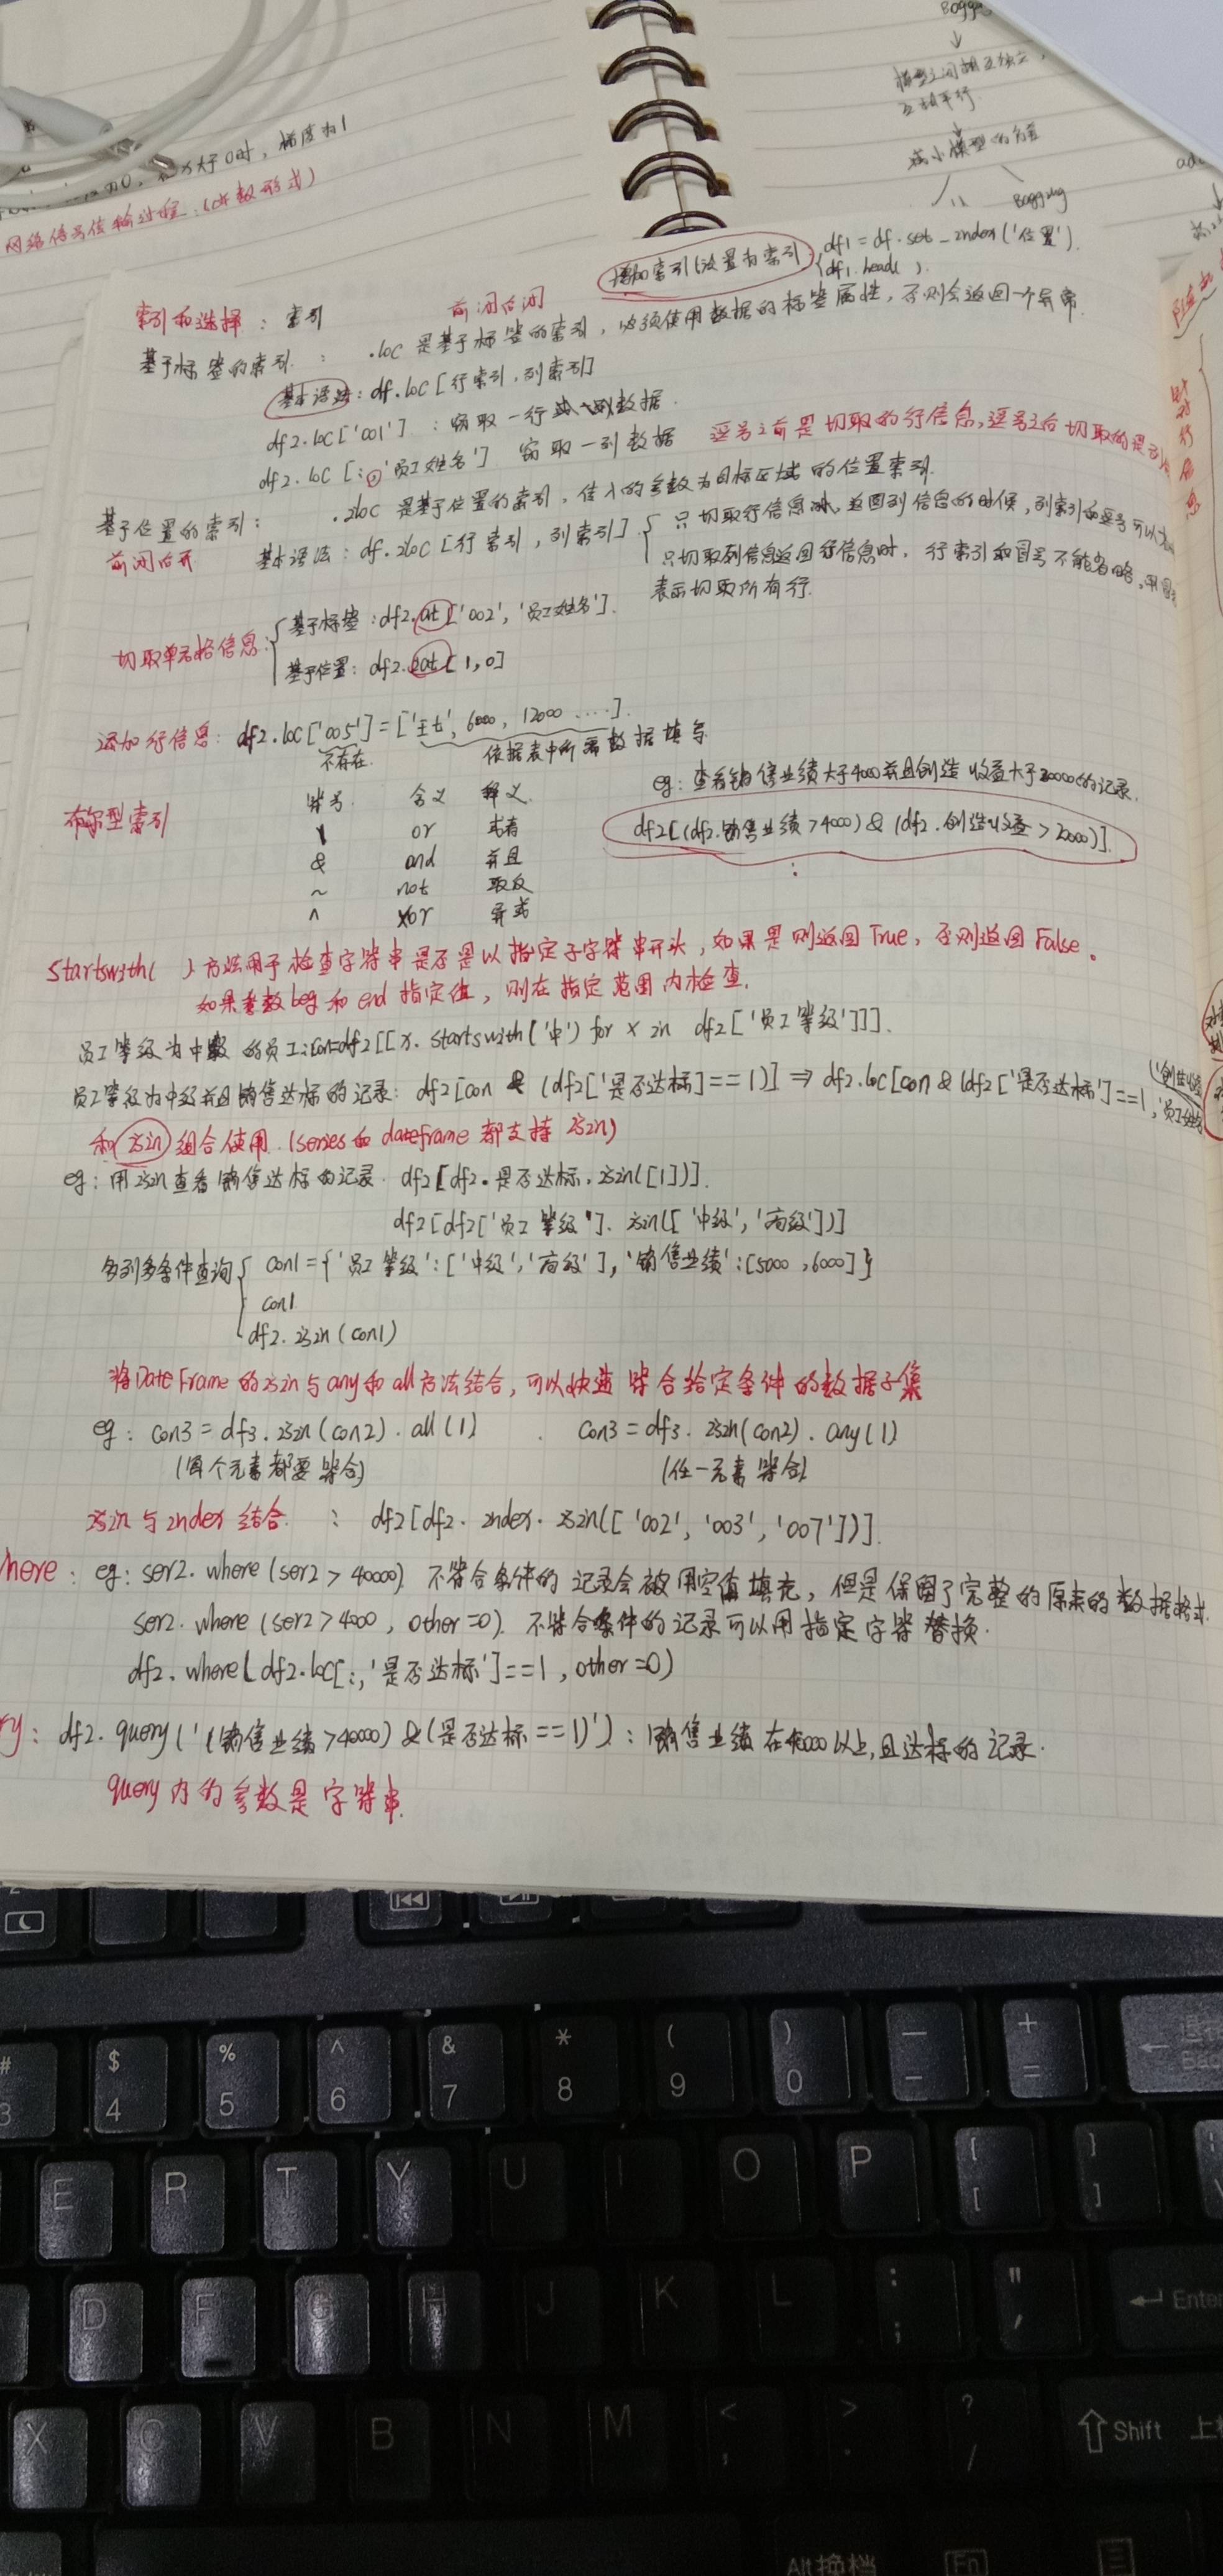 Bagg
↓
模型之间相互独立,
互相平行
减小模型的方差
Bagging
大于0时，梯度为1
网络信号传输过程：(函数形式)
增加索引(设置为索引) df1 = df.set_index('位置').
df1.head( ).
索引和选择：索引 前闭后闭
基于标签的索引： .loc 是基于标签的索引，必须使用数据的标签属性，否则会返回一个异常.
基本语法：df.loc[行索引,列索引]
df2.loc['001'] ：切取一行或一列数据.
df2.loc[:,'员工姓名'] 切取一列数据 逗号之前是切取的行信息,逗号之后切取的是列
基于位置的索引： .iloc 是基于位置的索引，传入的参数为目标区域的位置索引.
前闭后开 基本语法：df.iloc[行索引，列索引].
只切取行信息,返回列信息的时候，列索引和逗号可以
只切取列信息返回行信息时，行索引和冒号不能省略，用冒号
表示切取所有行.
切取单元格信息：
基于标签：df2.at['002','员工姓名'].
基于位置：df2.iat[1,0]
添加行信息：df2.loc['005']=['王七', 6000, 12000 ....].
不存在. 依据表中所需数据填写
eg：查看销售业绩大于4000并且创造收益大于20000的记录.
df2[(df2.销售业绩>4000)&(df2.创造收益>20000)].
布尔型索引
符号 含义 释义
| or 或者
& and 并且
~ not 取反
^ xor 异或
startswith( )方法用于检查字符串是否是以指定子字符串开头，如果是则返回True，否则返回False。
如果参数beg和end指定值，则在指定范围内检查.
员工等级为中级的员工:con=df2[[x.startswith('中') for x in df2['员工等级']]].
员工等级为中级并且销售达标的记录：df2[con & (df2['是否达标']==1)] ⇒ df2.loc[con & (df2['是否达标']==1,
和isin组合使用.(series和dateframe都支持isin)
eg：用isin查看销售达标的记录. df2[df2.是否达标.isin([1])].
df2[df2['员工等级'].isin(['中级','高级'])]
多列多条件查询
con1={'员工等级':['中级','高级'],'销售业绩':[5000,6000]}
con1
df2.isin(con1)
将DateFrame的isin与any和all方法结合，可以快速符合给定条件的数据子集
eg：con3=df3.isin(con2).all(1) con3=df3.isin(con2).any(1)
(每个元素都要符合) (任一元素符合)
isin与index结合 ： df2[df2.index.isin(['002','003','007'])].
here：eg：ser2.where(ser2>40000) 不符合条件的记录会被用空值填充，但是保留了完整的原来的数据格式.
ser2.where(ser2>4000, other=0). 不符合条件的记录可以用指定字符替换.
df2.where(df2.loc[:,'是否达标']==1,other=0)
ry：df2.query('(销售业绩>40000)&(是否达标==1)')：销售业绩在40000以上,且达标的记录.
query内的参数是字符串.
# 3
$ 4
% 5
^ 6
& 7
* 8
( 9
) 0
— -
+ =
E R T Y U I O P { [ } ]
D F G H J K L : ; " ' Enter
X C V B N M < , > . ? / Shift 上
Alt 换档 Fn